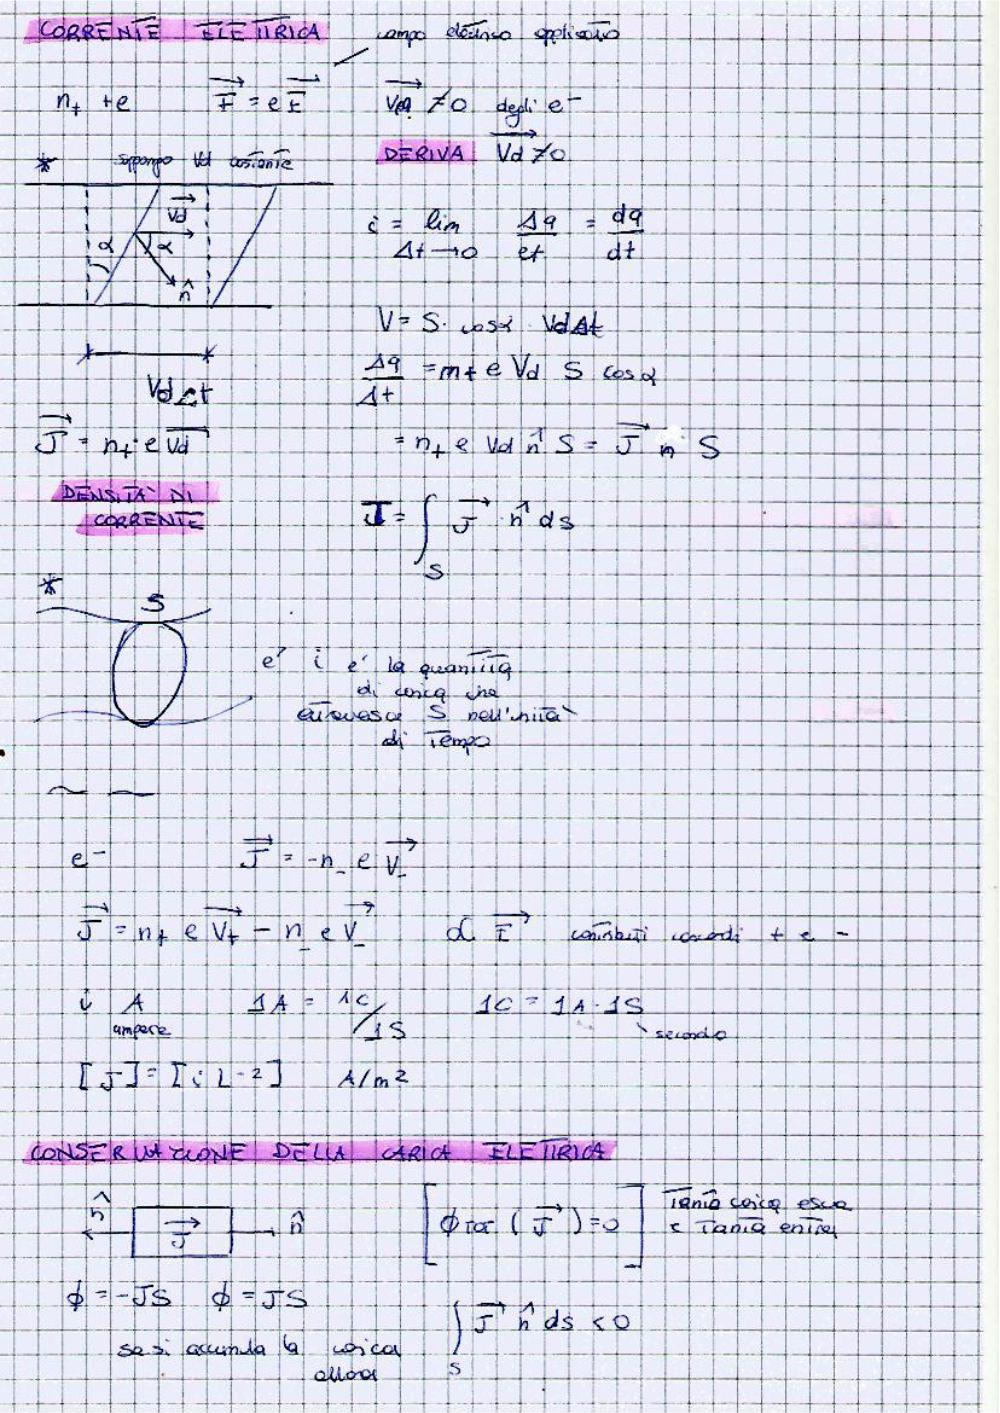 CORRENTE ELETTRICA campo elettrico applicato
n₊ +e F⃗ = e E⃗ degli e⁻
* suppongo Vd costante DERIVA V⃗d ≠ 0
V⃗d
α α
n̂
i = lim Δt→0 Δq/et = dq/dt
V = S · cosα · Vd Δt
Vd Δt
Δq/Δt = n+ e Vd S cosα
J⃗ = n₊ · e V⃗d = n₊ e Vd n̂ S = J⃗ n̂ S
DENSITA' DI
CORRENTE
I = ∫_S J⃗ · n̂ ds
*
S
e' i e' la quantità
di carica che
attraversa S nell'unità
di Tempo
e⁻ J⃗ = -n₋ e V⃗₋
J⃗ = n₊ e V⃗₊ - n₋ e V⃗₋ α E⃗ contributi concordi + e -
i A 1A = 1C/1S 1C = 1A · 1S
ampere secondo
[J] = [i L-2] A/m2
CONSERVAZIONE DELLA CARICA ELETTRICA
n̂ J⃗ n̂ [ϕ TOT (J⃗) = 0] Tanta carica esce
e Tanta entra
ϕ = -JS ϕ = JS
se si accumula la carica
allora
∫_S J⃗ n̂ ds < 0